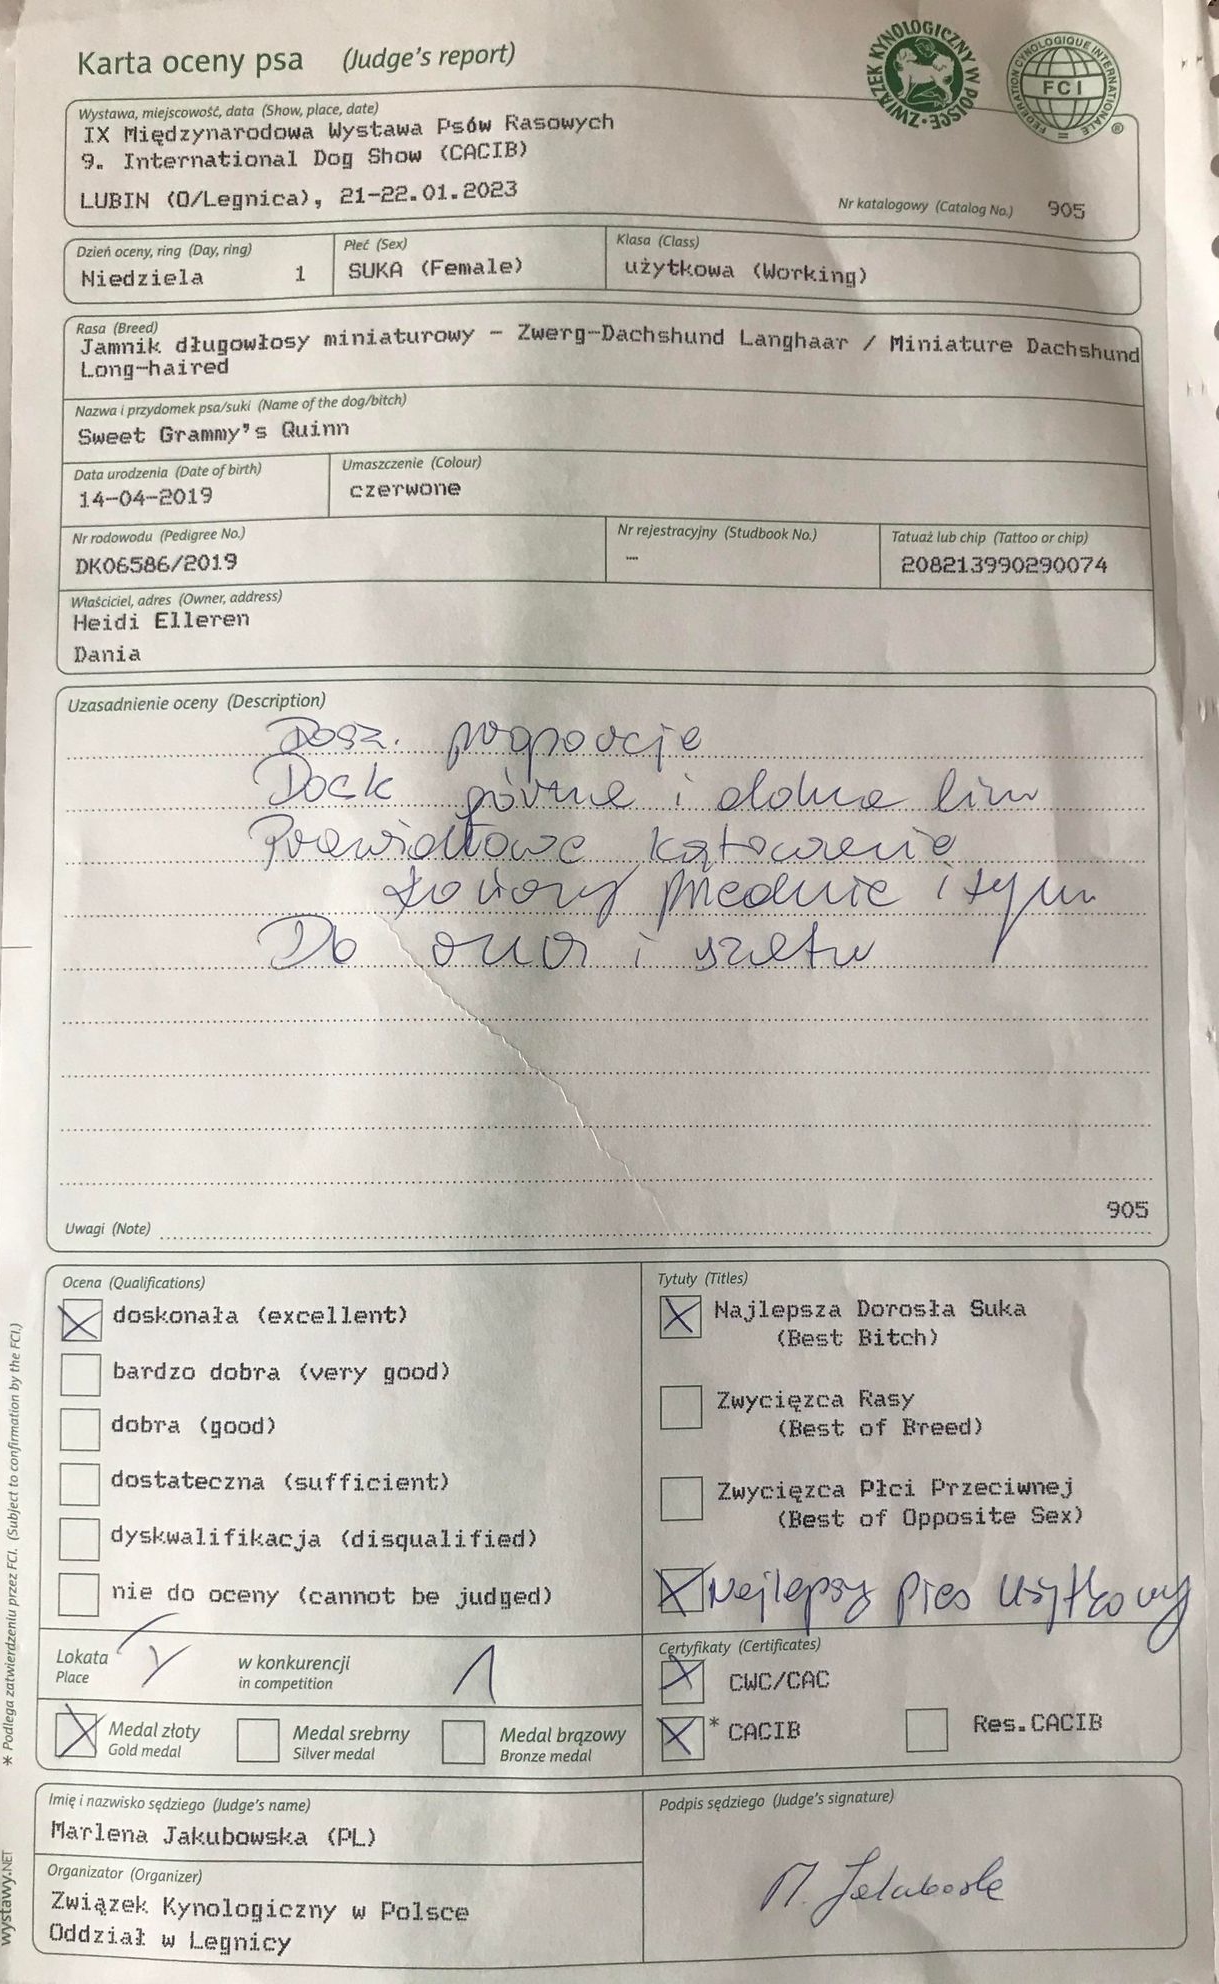 Karta oceny psa (Judge's report)
ZWIĄZEK KYNOLOGICZNY W POLSCE
FEDERATION CYNOLOGIQUE INTERNATIONALE
FCI
®
Wystawa, miejscowość, data (Show, place, date)
IX Międzynarodowa Wystawa Psów Rasowych
9. International Dog Show (CACIB)
LUBIN (O/Legnica), 21-22.01.2023
Nr katalogowy (Catalog No.) 905
Dzień oceny, ring (Day, ring) Płeć (Sex) Klasa (Class)
Niedziela 1 SUKA (Female) użytkowa (Working)
Rasa (Breed)
Jamnik długowłosy miniaturowy - Zwerg-Dachshund Langhaar / Miniature Dachshund
Long-haired
Nazwa i przydomek psa/suki (Name of the dog/bitch)
Sweet Grammy's Quinn
Data urodzenia (Date of birth) Umaszczenie (Colour)
14-04-2019 czerwone
Nr rodowodu (Pedigree No.) Nr rejestracyjny (Studbook No.) Tatuaż lub chip (Tattoo or chip)
DK06586/2019 -- 208213990290074
Właściciel, adres (Owner, address)
Heidi Elleren
Dania
Uzasadnienie oceny (Description)
Dosk. proporcje
Dosk górne i dolna lin
Prawidłowe kątowanie
kończyn przednie i tyln
Db
905
Uwagi (Note)
Ocena (Qualifications) Tytuły (Titles)
doskonała (excellent) Najlepsza Dorosła Suka
(Best Bitch)
bardzo dobra (very good)
dobra (good) Zwycięzca Rasy
(Best of Breed)
dostateczna (sufficient) Zwycięzca Płci Przeciwnej
(Best of Opposite Sex)
dyskwalifikacja (disqualified)
nie do oceny (cannot be judged) Najlepszy pies użytkowy
Lokata w konkurencji 1
Place in competition
Certyfikaty (Certificates)
CWC/CAC
* CACIB Res.CACIB
Medal złoty Medal srebrny Medal brązowy
Gold medal Silver medal Bronze medal
Imię i nazwisko sędziego (Judge's name) Podpis sędziego (Judge's signature)
Marlena Jakubowska (PL)
M. Jakubowska
Organizator (Organizer)
Związek Kynologiczny w Polsce
Oddział w Legnicy
* Podlega zatwierdzeniu przez FCI. (Subject to confirmation by the FCI.)
wystawy.NET